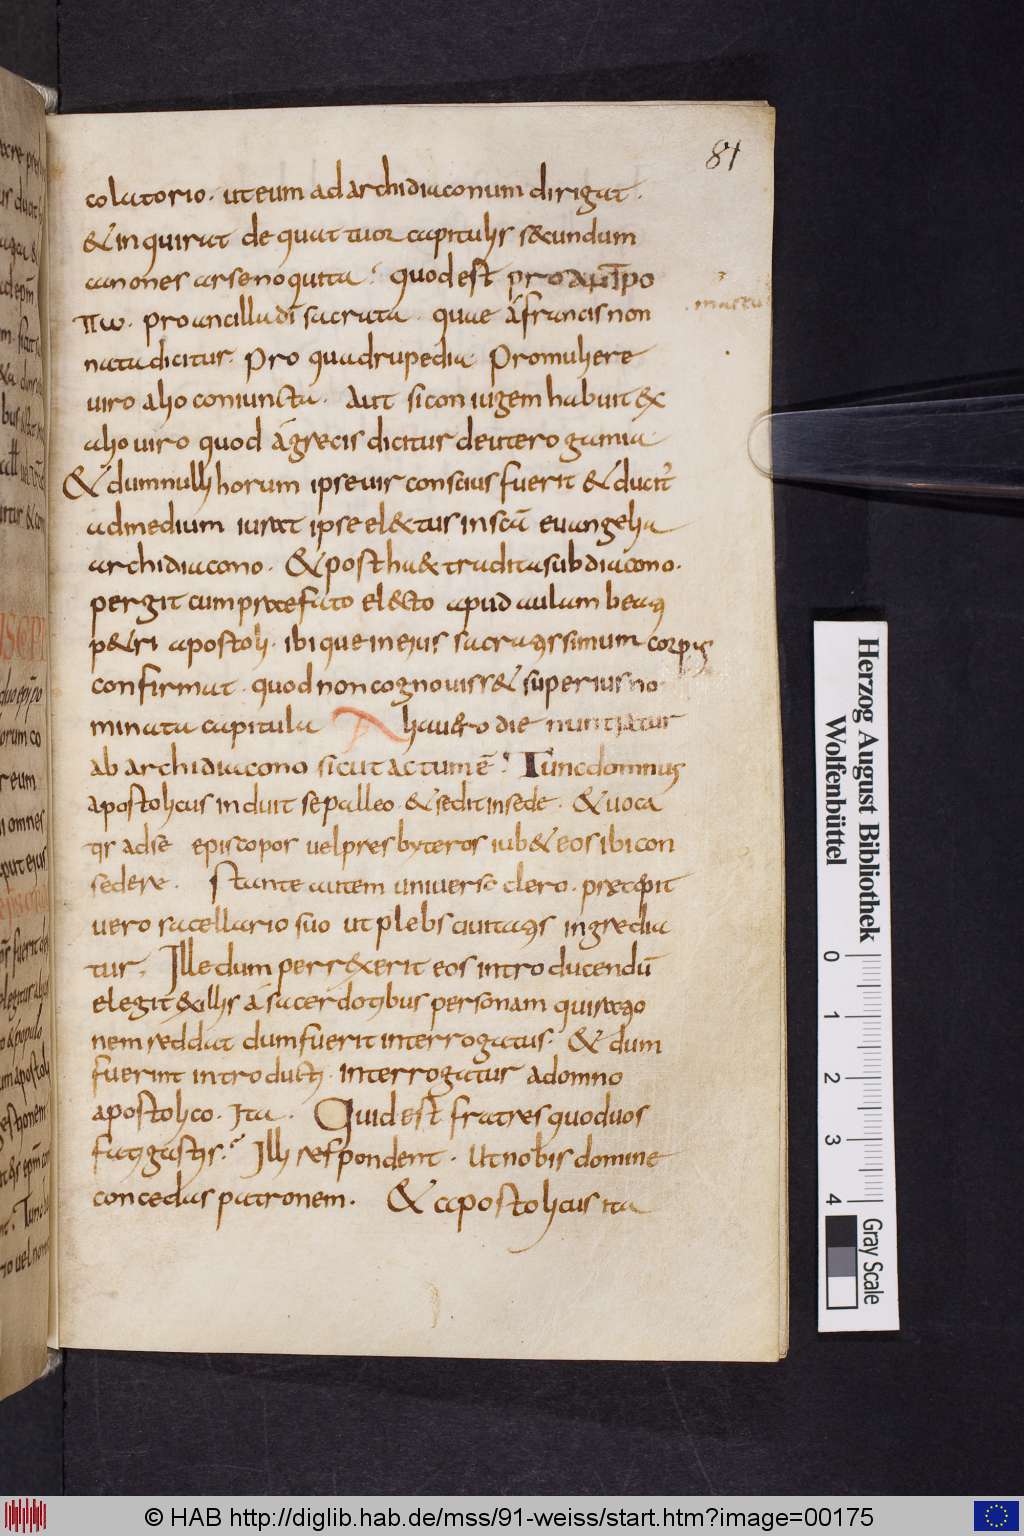 81
colatorio. ut eum ad archidiaconum dirigat.
& inquirat de quattuor capitulis s&cundum
canones arsenoquita. quod est pro
πω. pro ancilla dī sacrata. quae á francis non
nata dicitur. Pro quadrupedia Pro muliere
uiro alio coniuncta. Aut si coniugem habuit &x
alio uiro quod á grecis dicitur deuterogamia
& dum nullis horum ipse uir conscius fuerit & ducit'
ad medium iurat ipse el&tus in scā euangelia
archidiacono. & post ha& tradita subdiacono.
pergit cum praefato el&cto apud aulam beati
p&ri apostoli. ibique in eius sacratissimum corpus
confirmat. quod non cognouiss& superius no
minata capitula Alia u&ro die nuntiatur
ab archidiacono sicut actum ē. Tunc domnus
apostolicus induit se palleo. & sedit in sede. & uoca
tir ad se episcopos uel presbyteros iub& eos ibi con
sedere. Stante autem uniuerso clero. praecipit
uero sacellario suo ut plebs ciuitatis ingredia
tur. Ille dum perr&xerit eos introducendū
elegit & illis á sacerdotibus personam qui ratio
nem reddat dum fuerit interrogatus. & dum
fuerint introducti. interrogatur a domno
apostolico. Ita. Quid est fratres quod uos
fatigastis? Illi respondent. Ut nobis domine
concedas patronem. & apostolicus ita
Herzog August Bibliothek
Wolfenbüttel
0 1 2 3 4
Gray Scale
© HAB http://diglib.hab.de/mss/91-weiss/start.htm?image=00175